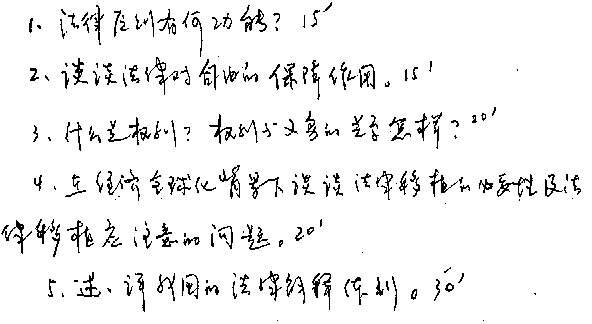 1、法律原则有何功能？15'
2、谈谈法律对自由的保障作用。15'
3、什么是权利？权利与义务的关系怎样？20'
4、在经济全球化背景下谈谈法律移植的必要性及法
律移植应注意的问题。20'
5、述、评我国的法律解释体制。30'